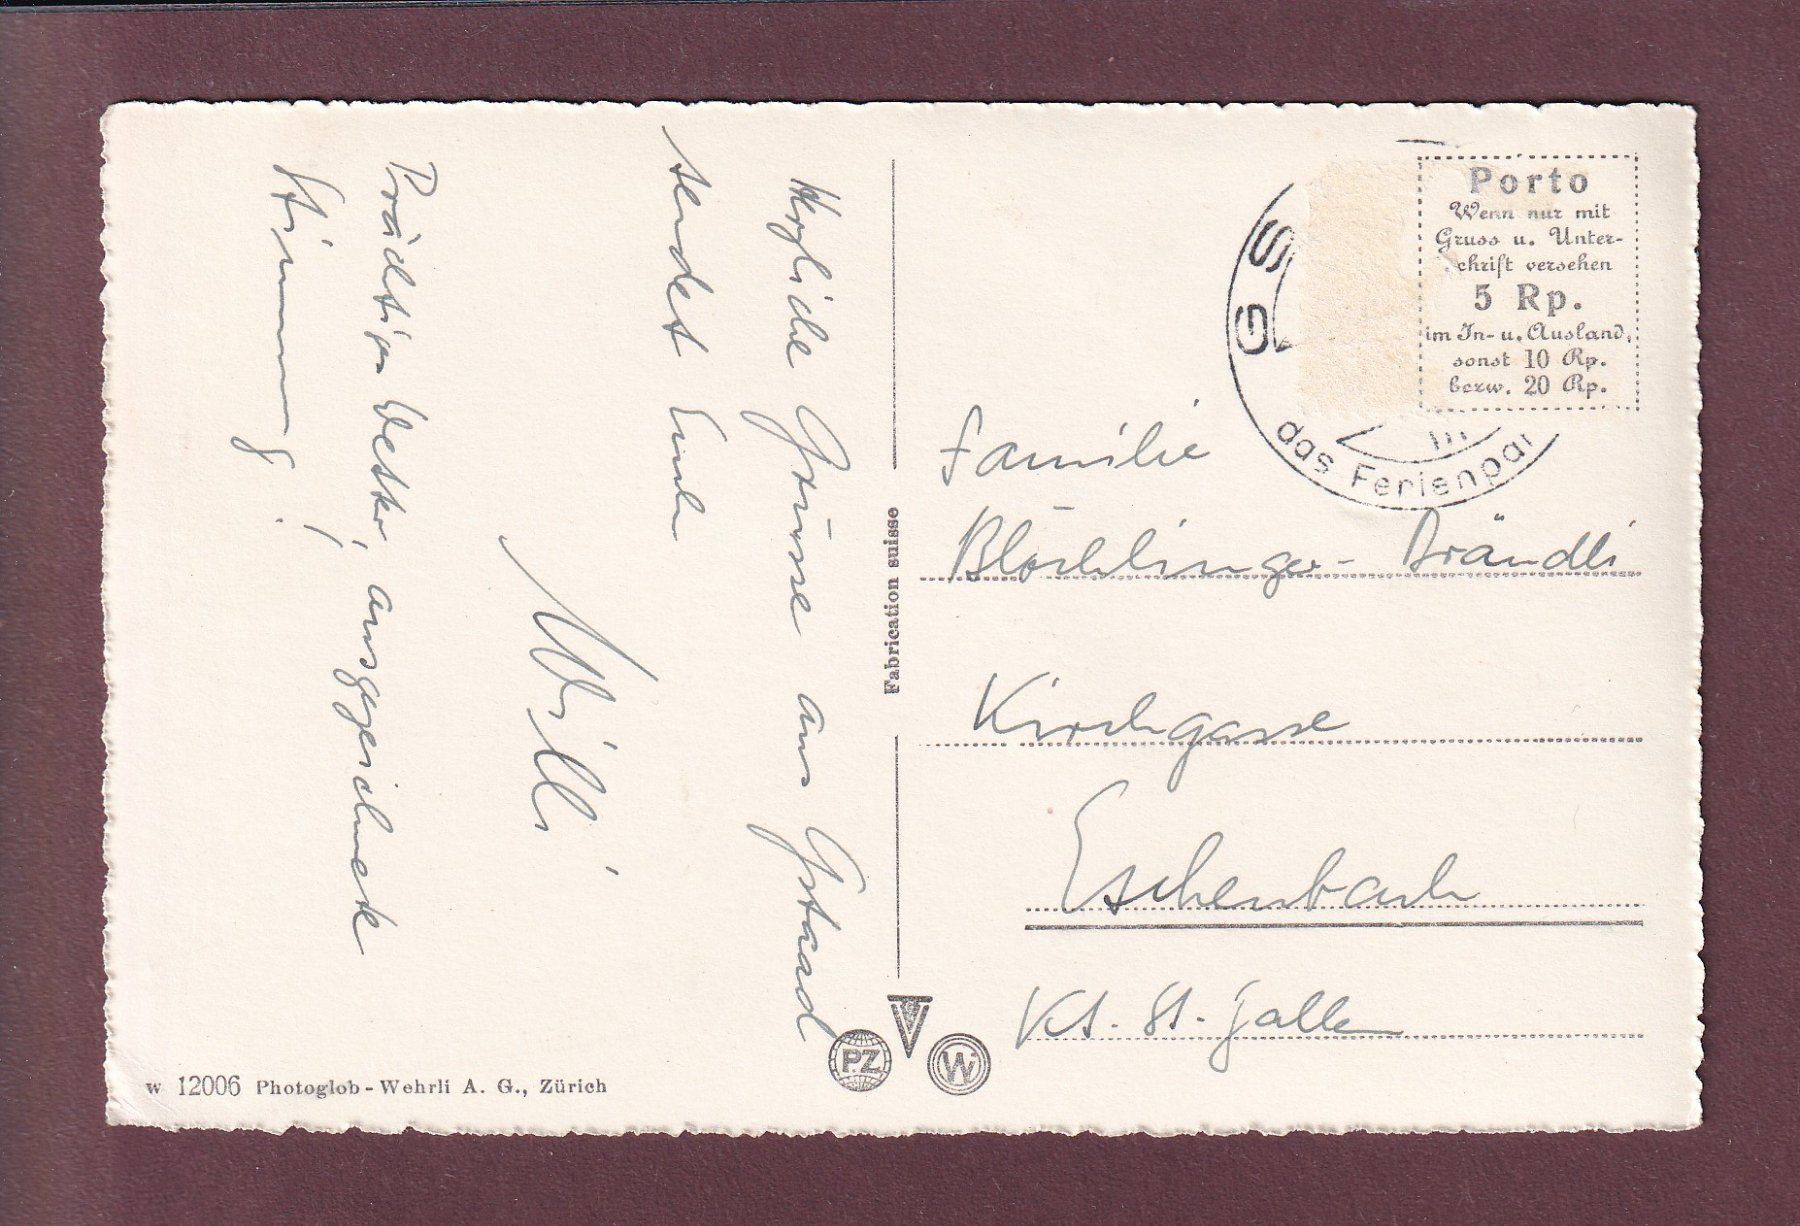 Herzliche Grüsse aus Gstaad
sendet Euch
Willi
Prächtiges Wetter, ausgezeichnete
Stimmung!
Fabrication suisse
GS
das Ferienpar
Porto
Wenn nur mit
Gruss u. Unter-
schrift versehen
5 Rp.
im In- u. Ausland,
sonst 10 Rp.
bezw. 20 Rp.
Familie
Blöchlinger-Brändli
Kirchgasse
Eschenbach
Kt. St. Gallen
PZ
W
W 12006 Photoglob-Wehrli A. G., Zürich